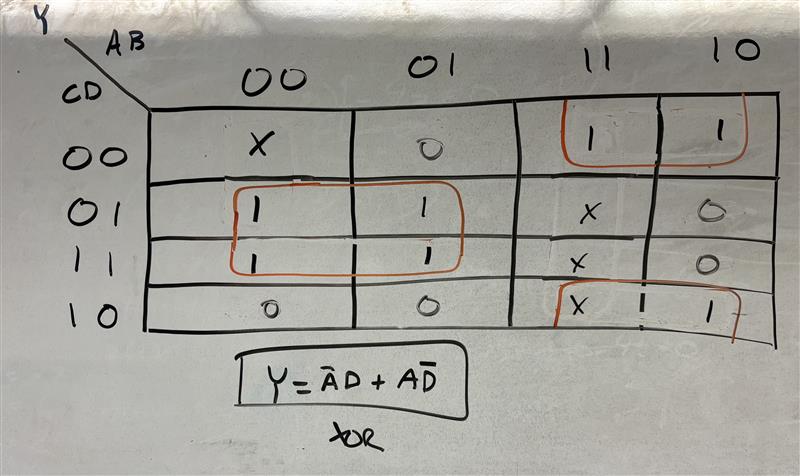 Y
AB
CD
00 01 11 10
00 X 0 1 1
01 1 1 X 0
11 1 1 X 0
10 0 0 X 1
Y = A̅D + AD̅
XOR